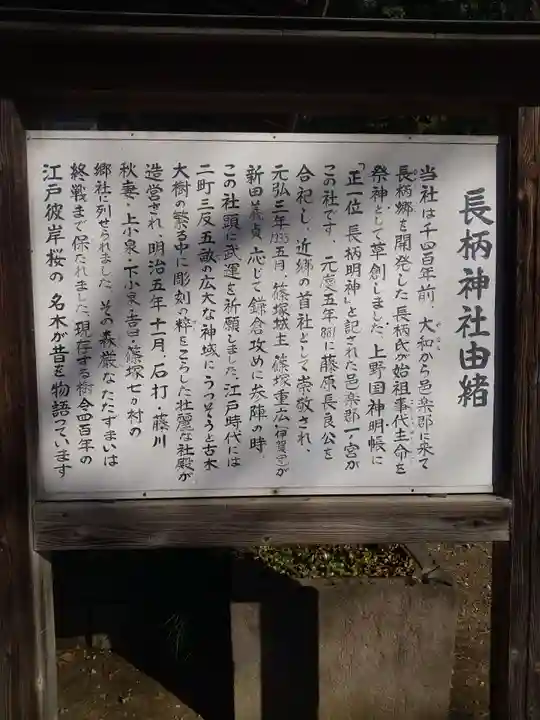 長柄神社由緒
当社は千四百年前、大和から邑楽郡に来て
長柄郷を開発した長柄氏が始祖事代主命を
祭神として草創しました。上野国神明帳に
「正一位 長柄明神」と記された邑楽郡一ノ宮が
この社です。元慶五年881に藤原長良公を
合祀し、近郷の首社として崇敬され、
元弘三年1333五月、篠塚城主篠塚重広(伊賀守)が
新田義貞に応じて鎌倉攻めに参陣の時、
この社頭に武運を祈願しました。江戸時代には
二町三反五畝の広大な神域にうつそうと古木
大樹の繁る中に彫刻の粋をこらした壮麗な社殿が
造営され、明治五年十一月、石打・藤川
秋妻・上小泉・下小泉・吉田・篠塚七ヵ村の
郷社に列せられました。その森厳なたたずまいは
終戦まで保たれました。現存する樹令四百年の
江戸彼岸桜の名木が昔を物語っています